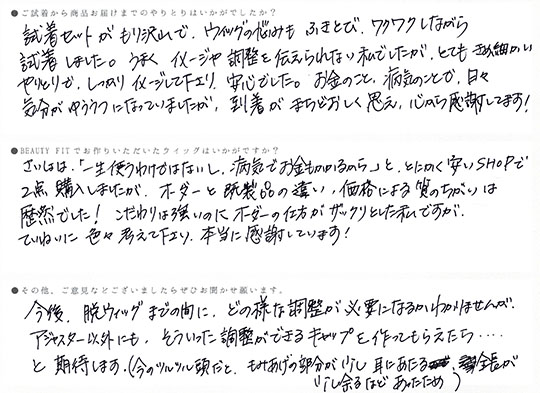 ●ご試着から商品お届けまでのやりとりはいかがでしたか？
試着セットがもり沢山で、ウィッグの悩みもふきとび、ワクワクしながら
試着しました。うまくイメージや調整を伝えられない私でしたが、とてもきめ細かい
やりとりで、しっかりイメージして下さり、安心でした。お金のこと、病気のことで、日々
気分がゆううつになっていましたが、到着がまちどおしく思え、心から感謝してます！
●BEAUTY FITでお作りいただいたウイッグはいかがですか？
さいしょは、「一生使うわけではないし、病気でお金もかかるから」と、とにかく安いSHOPで
2点購入しましたが、オーダーと既製品の違い、価格による質のちがいは
歴然でした！こだわりは強いのにオーダーの仕方がザックリとした私ですが、
ていねいに色々考えて下さり、本当に感謝しています！
●その他、ご意見などございましたらぜひお聞かせ願います。
今後、脱ウィッグまでの間に、どの様な調整が必要になるかわかりませんが、
アジャスター以外にも、そういった調整ができるキャップを作ってもらえたら・・・・
と期待します。（今のツルツル頭だと、もみあげの部分が少し耳にあたる 全長が
少し余るほどあったため）